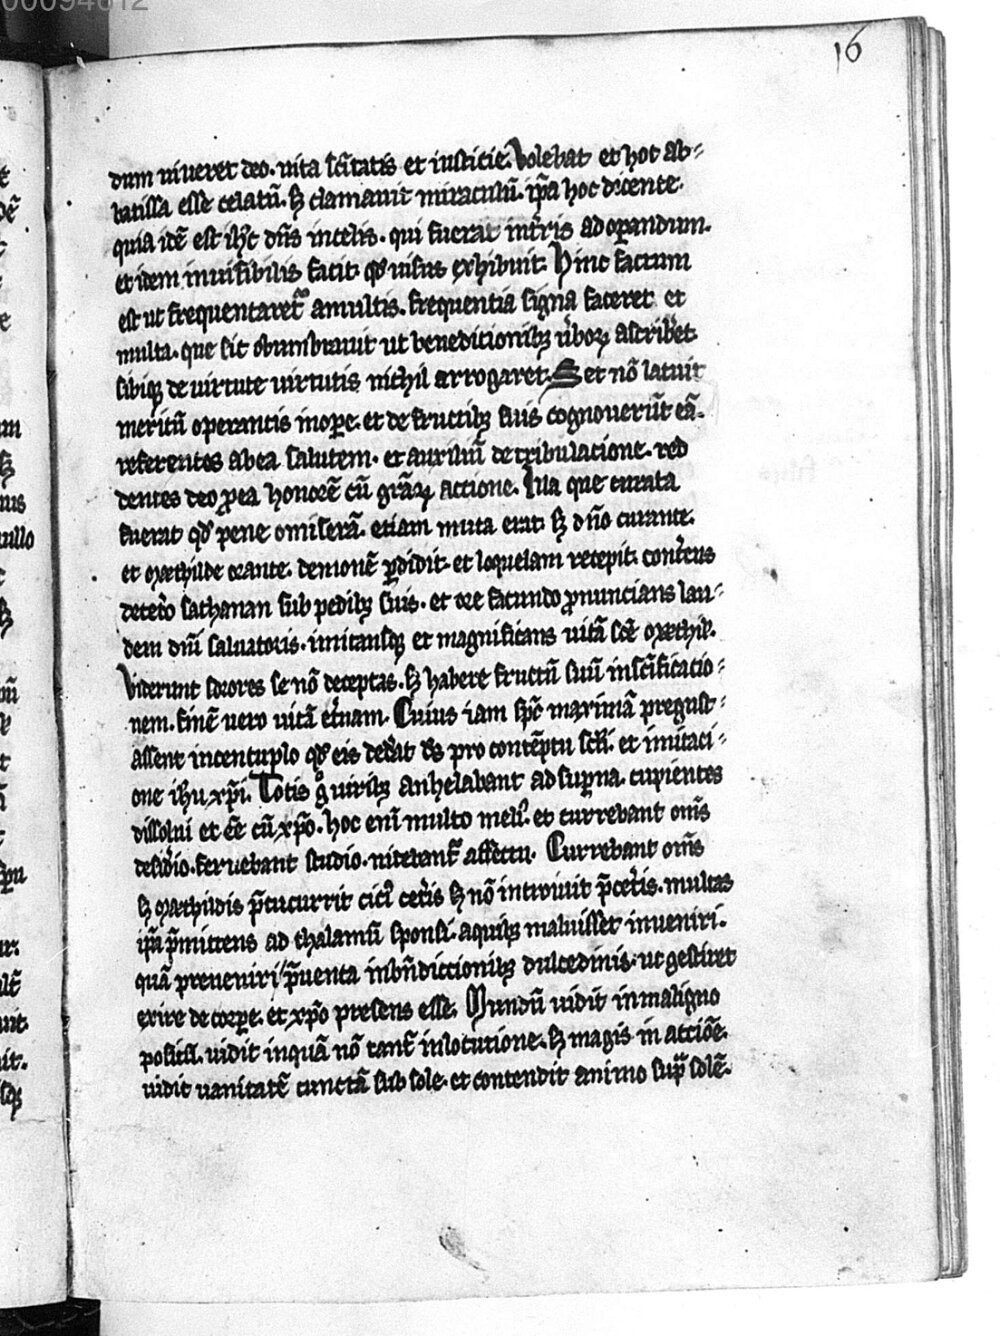 00094612
16
dum uiueret deo. uita sc̄itatis et iusticie. Volebat et hoc ab-
batissa esse celatū. sꝫ clamauit miraculū. ip̄a hoc dicente.
quia idē est ih̄c dn̄s in celis. qui fuerat in t̄ris ad oꝑandum.
et idem inuisibilis facit. qd̓ uisus exhibuit. Hinc factum
est ut frequentaret᷑ a multis. frequentia signa faceret et
multa. que sic obumbrauit ut benedictionibꝫ ūboꝝ ascribet.
sibiqꝫ de uirtute uirtutis nichil arrogaret. Set nō latuit
meritū operantis in oꝑe. et de fructibꝫ suis cognouerūt eā.
referentes ab ea salutem. et auxiliū de tribulacione. red
dentes deo ꝓ ea honorē cū gr̄aꝝ actione. Illa que curata
fuerat qd̓ pene omiserā. etiam muta erat. sꝫ dn̄o curante.
et mæthilde orante. demonē ꝑdidit. et loquelam recepit. cont̄ens
de cet̓o sathanan sub pedibꝫ suis. et ore facundo ꝓnuncians lau-
dem dn̄i saluatoris. imitansqꝫ et magnificans uitā sc̄e mæthild̓.
Viderunt sorores se nō deceptas. sꝫ habere fructū suū in sc̄ificatio-
nem. finē uero uitā et̓nam. Cuius iam spē maximā pregust-
assent in centuplo qd̓ eis ded̓at d̄s pro contēptu sc̄li. et imitaci-
one ih̄u xp̄i. Totis g̊ uiribꝫ anhelabant ad suꝑna. cupientes
dissolui et ēe cū xp̄o. hoc enī multo meli᷒. et currebant om̄s
desid̓io. feruebant studio. nitebant᷑ affectu. Currebant om̄s
sꝫ mæthildis p̄cucurrit citi᷒ cet̓is sꝫ nō introiuit p̄ cet̓is. multas
ip̄a p̄mittens ad thalamū sponsi. a quibꝫ maluisset inueniri.
quā preueniri / p̄uenta in bn̄dictionibꝫ dulcedinis. ut gestiret
exire de corꝑe. et xp̄o presens esse. Mundū uidit in maligno
positū. uidit inquā nō tant̄ in locutione. sꝫ magis in actiōe.
uidit uanitatē cunctā sub sole. et contendit animo sup̄ solē.